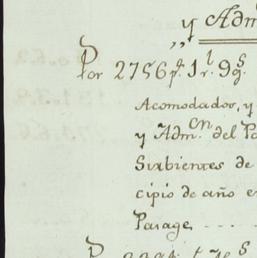 y Adm
Por 2756 p.s 1 r.l 9 g.s
Acomodador, y
y Adm.cn del Pa
Sirbientes de
cipio de año e
Parage
P